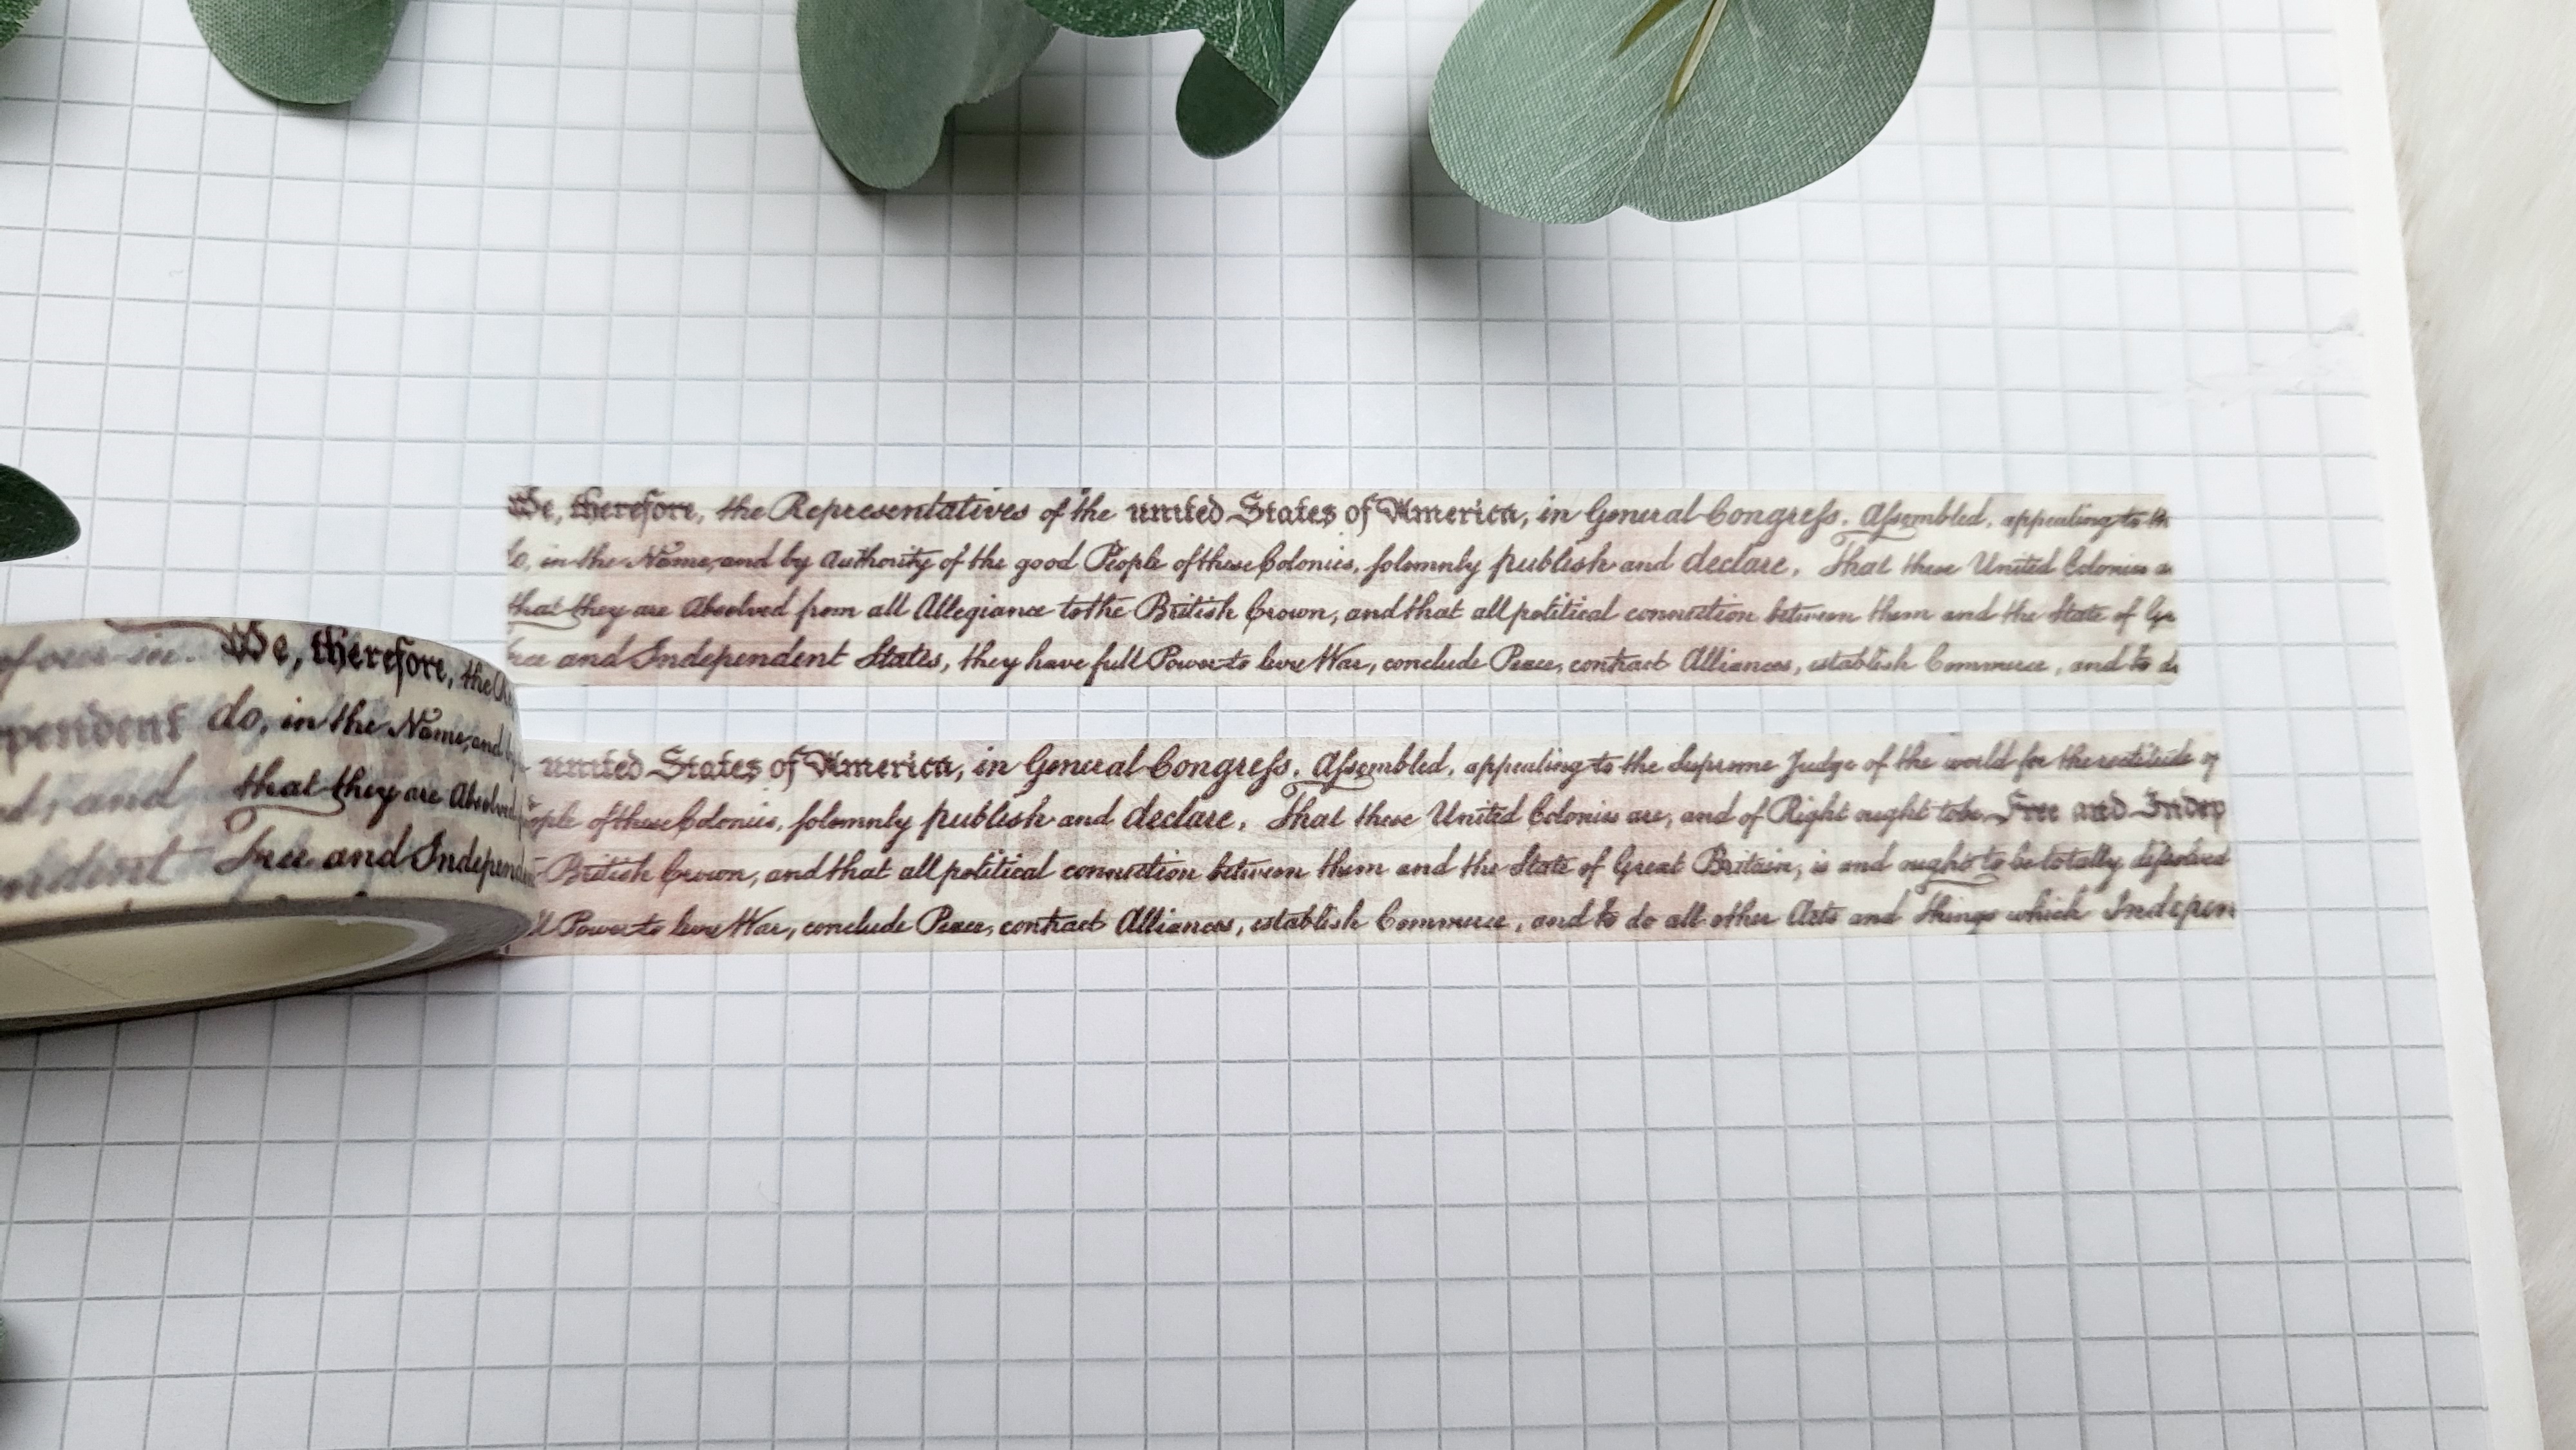 We, therefore, the Representatives of the united States of America, in General Congreſs, Aſsembled, appealing to th
do, in the Name, and by Authority of the good People of these Colonies, solemnly publish and declare, That these United Colonies a
that they are Absolved from all Allegiance to the British Crown, and that all political connection between them and the State of Gr
Free and Independent States, they have full Power to levy War, conclude Peace, contract Alliances, establish Commerce, and to do
We, therefore, the
pendent do, in the Name, and by
and that they are Absolved
Free and Independ
united States of America, in General Congreſs, Aſsembled, appealing to the Supreme Judge of the world for the rectitude of
ople of these Colonies, solemnly publish and declare, That these United Colonies are, and of Right ought to be Free and Indep
British Crown, and that all political connection between them and the State of Great Britain, is and ought to be totally diſsolved
ll Power to levy War, conclude Peace, contract Alliances, establish Commerce, and to do all other Acts and Things which Indepen